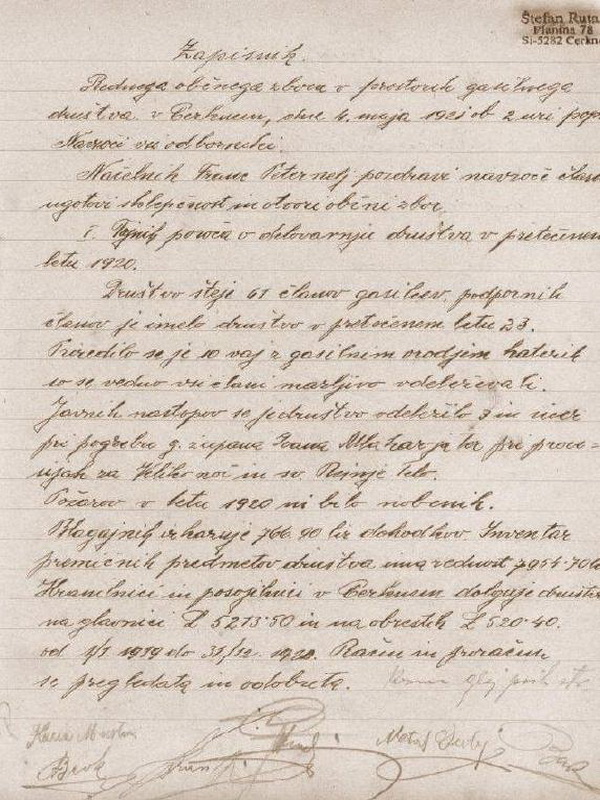 Štefan Ruta
Planina 78
SI-5282 Cerkn
Zapisnik.
Rednega občnega zbora v prostorih gasilnega
društva v Cerknem, dne 4. maja 1921 ob 2 uri pop
Navzoči vsi odborniki.
Načelnik Franc Peternelj pozdravi navzoče član
ugotovi sklepčnost in otvori občni zbor.
I. Tajnik poroča o delovanju društva v pretečenem
letu 1920.
Društvo šteje 61 članov gasilcev, podpornih
članov je imelo društvo v pretečenem letu 23.
Priredilo se je 10 vaj z gasilnim orodjem katerih
so se vedno vsi člani marljivo vdeleževali.
Javnih nastopov se je društvo vdeležilo 3 in sicer
pri pogrebu g. župana Ivana ter pri proce=
sijah za Veliko noč in sv. Rešnje Telo.
Požarov v letu 1920 ni bilo nobenih.
Blagajnik izkazuje 766.90 lir dohodkov. Inventar
premičnih predmetov društva ima vrednost 7954.70
Hranilnici in posojilnici v Cerknem dolguje društvo
na glavnici £ 5213.50 in na obrestih £ 520.40.
od 1/I 1919 do 31/12. 1920. Račun in proračun
se pregledata in odobrita.